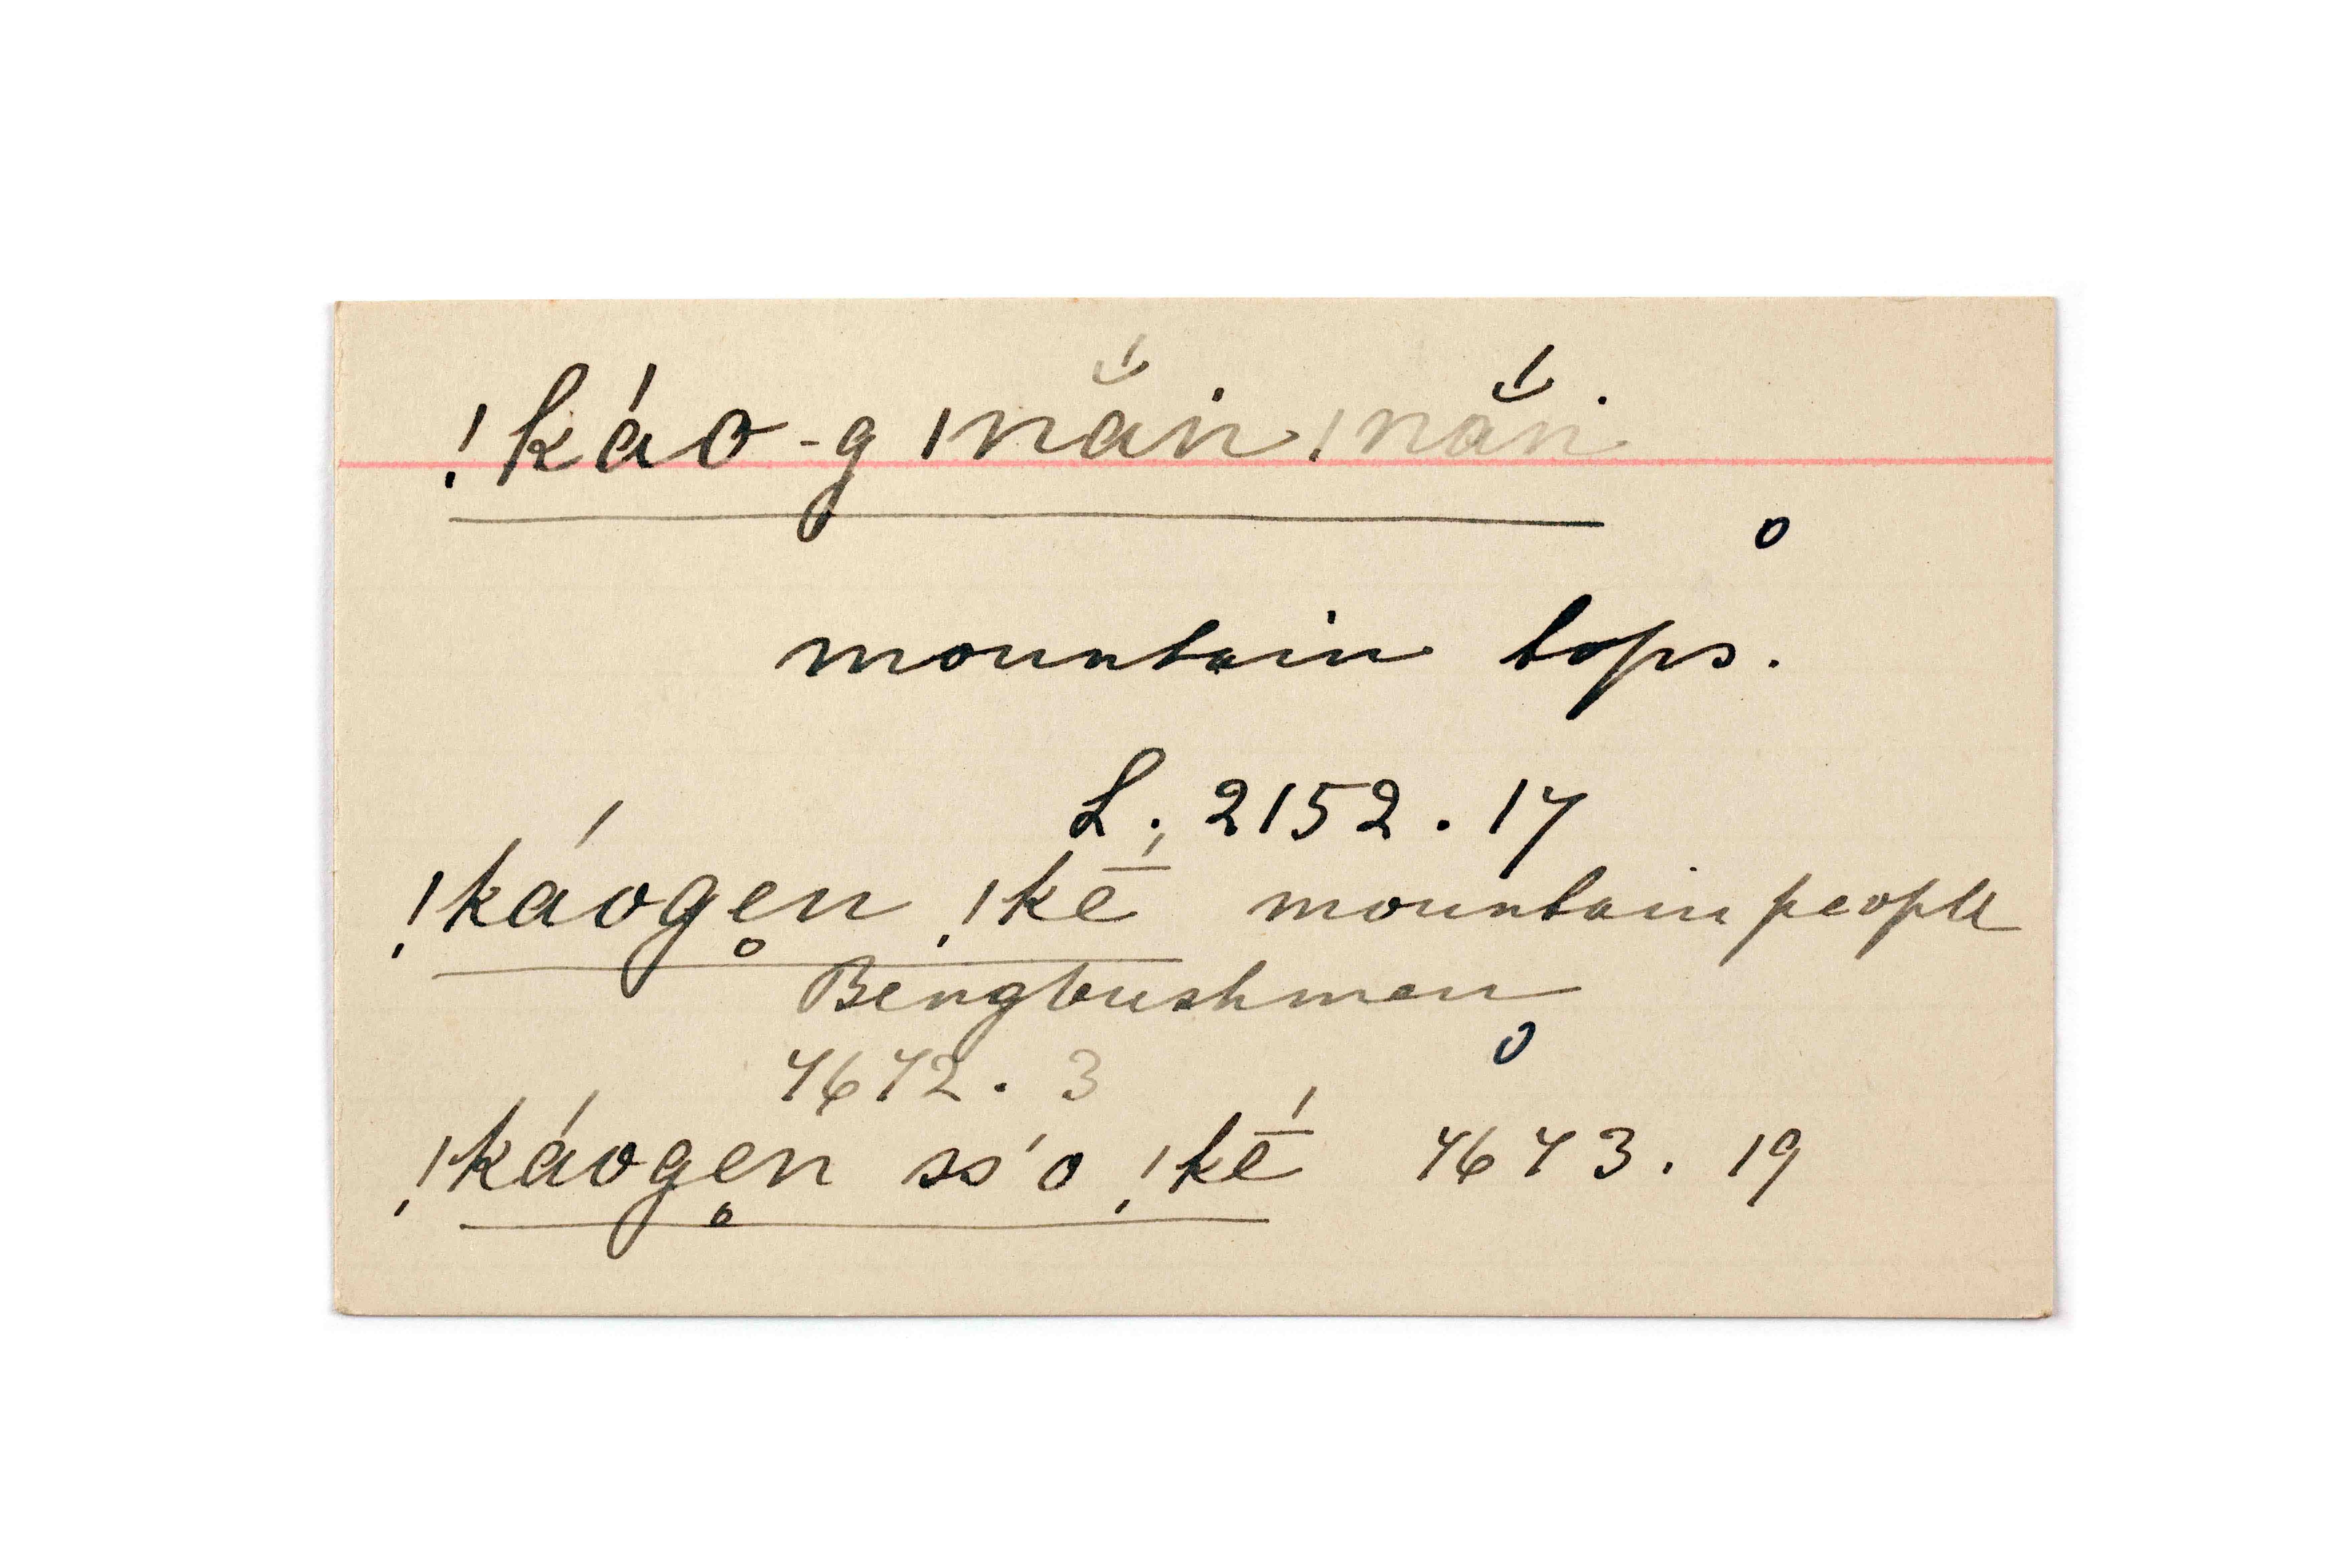 !káo-g |nắin |nắn
o
mountain tops.
L. 2152. 17
!káoge̥n !kḗ mountain people
Bergbushmen
4672. 3 o
!káoge̥n ss'o !kḗ 4673. 19